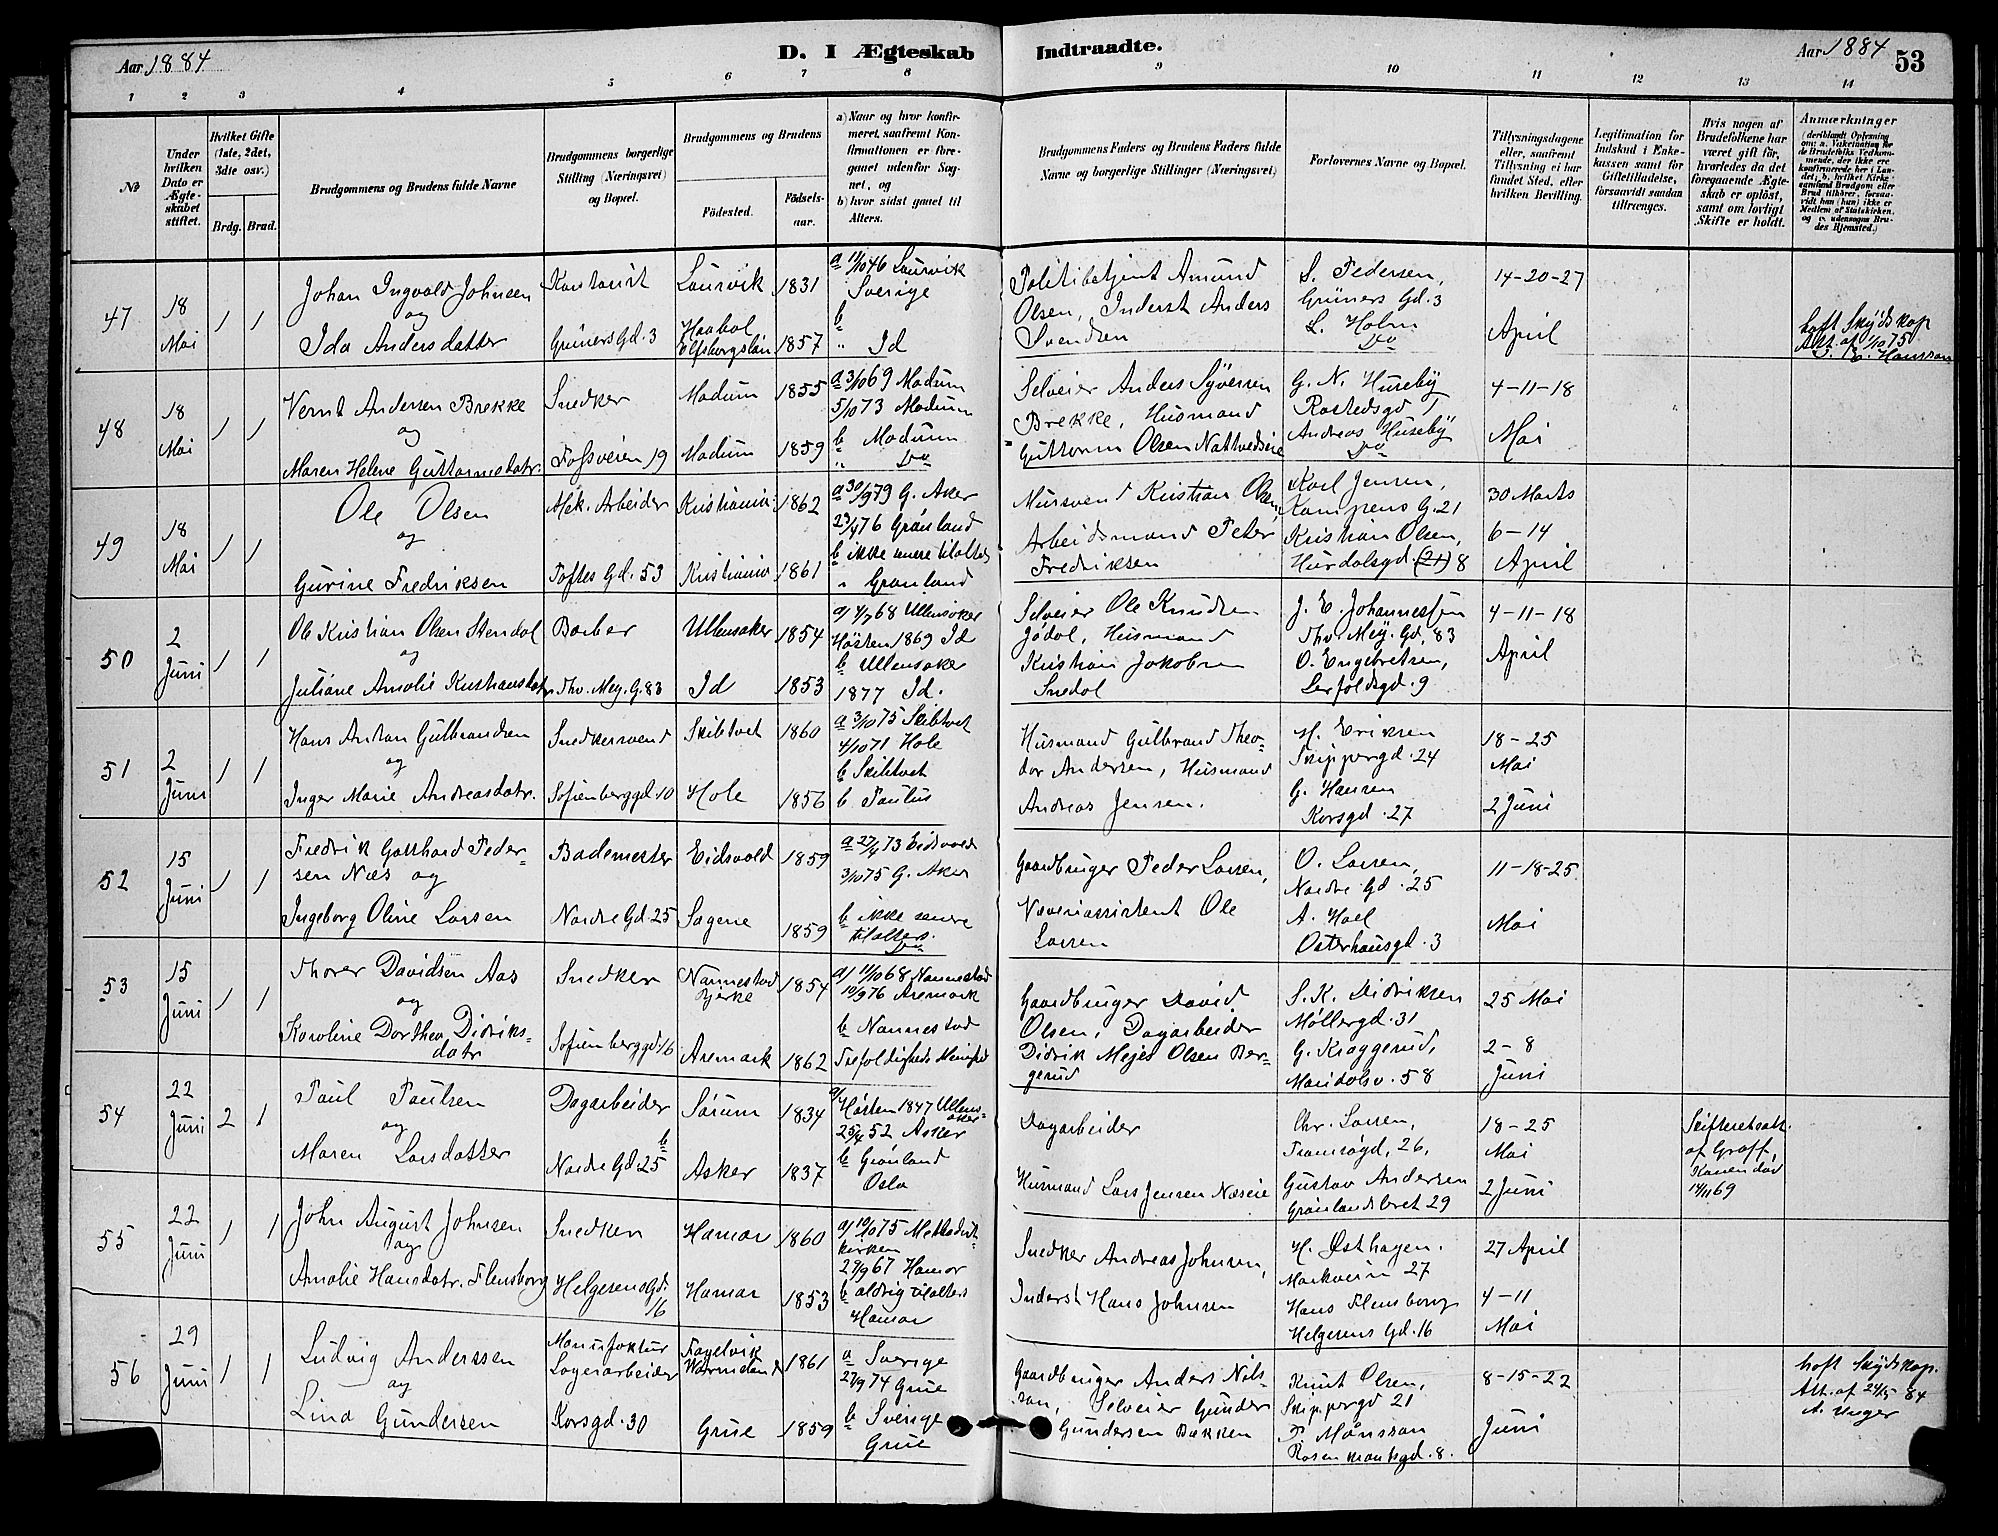 Aar 1884
D. I Ægteskab Indtraadte.
Aar 1884 53
1 2 3 4 5 6 7 8 9 10 11 12 13 14
No
Under hvilken Dato er Ægteskabet stiftet.
Hvilket Gifte (1ste, 2det, 3dte osv.)
Brdg. Brud.
Brudgommens og Brudens fulde Navne
Brudgommens borgerlige Stilling (Næringsvei) og Bopæl.
Brudgommens og Brudens
Födested.
Födsels-aar.
a) Naar og hvor konfirmeret, saafremt Konfirmationen er foregaaet udenfor Sognet, og
b) hvor sidst gaaet til Alters.
Brudgommens Faders og Brudens Faders fulde Navne og borgerlige Stillinger (Næringsvei)
Forlovernes Navne og Bopæl.
Tillysningsdagene eller, saafremt Tillysning ei har fundet Sted, efter hvilken Bevilling.
Legitimation for Indskud i Enkekassen samt for Giftetilladelse, forsaavidt saadan tiltrænges.
Hvis nogen af Brudefolkene har været gift før, hvorledes da det foregaaende Ægteskab er opløst, samt om lovligt Skifte er holdt.
Anmærkninger
(deriblandt Oplysning om: a. Vakcination for de Brudefolks Vedkommende, der ikke ere konfirmerede her i Landet; b. hvilket Kirkesamfund Brudgom eller Brud tilhører, forsaavidt han (hun) ikke er Medlem af Statskirken, og c. udensogns Brudes Hjemsted.)
47
18 Mai
1 1
Johan Ingvald Johnsen
og
Ida Andersdatter
Kontorist
Grüners Gd. 3
Laurvik 1831
Haabol Elfsborgslän 1857
a 11/10 46 Laurvik
Sverige
b
" Id
Politibetjent Amund
Olsen, Inderst Anders
Svendsen
S. Pedersen,
Grüners Gd. 3
L. Holm
Do
14-20-27
April
haft Skydskop.
Att. af 1/10 75
48
18 Mai
1 1
Bernt Andersen Brekke
og
Maren Helene Guttormsdatr.
Snedker
Fossveien 19
Modum 1855
Modum 1859
a 3/10 69 Modum
5/10 73 Modum
b Modum
" Do
Selveier Anders Syversen
Brekke, Husmand
Guttorm Olsen Nattvedseie
G. N. Huseby
Rostedsgd 1
Andreas Huseby
Do
4-11-18
Mai
49
18 Mai
1 1
Ole Olsen
og
Gurine Fredriksen
Mek. Arbeider
Toftes Gd. 53
Kristiania 1862
Kristiania 1861
a 30/9 79 G. Aker
23/4 76 Grønland
b ikke senere tilalters
" Grønland
Mursvend Kristian Olsen
Arbeidsmand Peter
Fredriksen
Karl Jensen,
Kampens G. 21
Kristian Olsen,
Hurdalsgd (21) 8
30 Marts
6-14
April
50
2 Juni
1 1
Ole Kristian Olsen Stendal
og
Juliane Amalie Kristiansdatr
Barber
Thv. Mey. G. 83
Ullensaker 1854
Id 1853
a) 4/7 68 Ullensaker
Høsten 1869 Id
b Ullensaker
1877 Id.
Selveier Ole Knudsen
Jødal, Husmand
Kristian Jakobsen
Snedal
J. E. Johannessen
Thv. Mey. Gd. 83
O. Engebretsen,
Lerfoldsgd. 9
4-11-18
April
51
2 Juni
1 1
Hans Anton Gulbrandsen
og
Inger Marie Andreasdatr.
Snedkersvend
Sofienberggd. 10
Skibtvet 1860
Hole 1856
a 3/10 75 Skibtvet
4/10 71 Hole
b Skibtvet
b Paulus
Husmand Gulbrand Theo-
dor Andersen, Husmand
Andreas Jensen.
H. Eriksen
Skippergd. 24
G. Hansen
Korsgd. 27
18-25
Mai
2 Juni
52
15 Juni
1 1
Fredrik Gotthard Peder-
sen Næs og
Ingeborg Oline Larsen
Bademester
Nordre Gd. 25
Eidsvold 1859
Sagene 1859
a 27/4 73 Eidsvold
3/10 75 G. Aker
b ikke senere
tilalters.
Do
Gaardbruger Peder Larsen,
Væveriassistent Ole
Larsen
O. Larsen,
Nordre Gd. 25
A. Hoel
Osterhausgd. 3
11-18-25
Mai
53
15 Juni
1 1
Thorer Davidsen Aas
og
Karoline Dorthea Didriks-
datr
Snedker
Sofienberggd. 16
Nannestad
Bjerke 1854
Aremark 1862
a) 11/10 68 Nannestad
10/9 76 Aremark
b Nannestad
Trefoldigheds Menighed
Gaardbruger David
Olsen, Dagarbeider
Didrik Mejer Olsen Ber-
gerud
S. K. Didriksen
Møllergd. 31
G. Kraggerud,
Maridalsv. 58
25 Mai
2-8
Juni
54
22 Juni
2 1
Paul Paulsen
og
Maren Larsdatter
Dagarbeider
Nordre Gd. 25 b
Sørum 1834
Asker 1837
a) Høsten 1847 Ullens-
aker
25/4 52 Asker
b Grønland
Oslo
Dagarbeider
Husmand Lars Jensen Næseie
Chr. Larsen,
Tromsøgd. 26,
Gustav Andersen
Grønlandsleret 29
18-25
Mai
2 Juni
Skifteretsatt.
af Graff,
Konen død
14/11 69
55
22 Juni
1 1
John August Johnsen
og
Amalie Hansdatr. Flensborg
Snedker
Helgesens Gd. 16
Hamar 1860
Hamar 1853
a) 10/10 75 Methodist-
kirken
27/9 67 Hamar
b aldrig tilalters
Hamar
Snedker Andreas Johnsen,
Inderst Hans Johnsen
H. Østhagen.
Markveien 27
Hans Flensborg
Helgesens Gd. 16
27 April
4-11
Mai
56
29 Juni
1 1
Ludvig Anderssen
og
Lina Gundersen
Manufaktur
Lagerarbeider
Korsgd. 30
Fagelvik
Wärmeland 1861
Grue 1859
a Sverige
27/9 74 Grue
b Sverige
Grue
Gaardbruger Anders Nils-
son, Selveier Gunder
Gundersen Bækken
Knut Olsen,
Skippergd 21
P. Månsson
Rosenkrantzgd. 8.
8-15-22
Juni
haft Skydskop.
Att. af 24/5 84
A. Unger